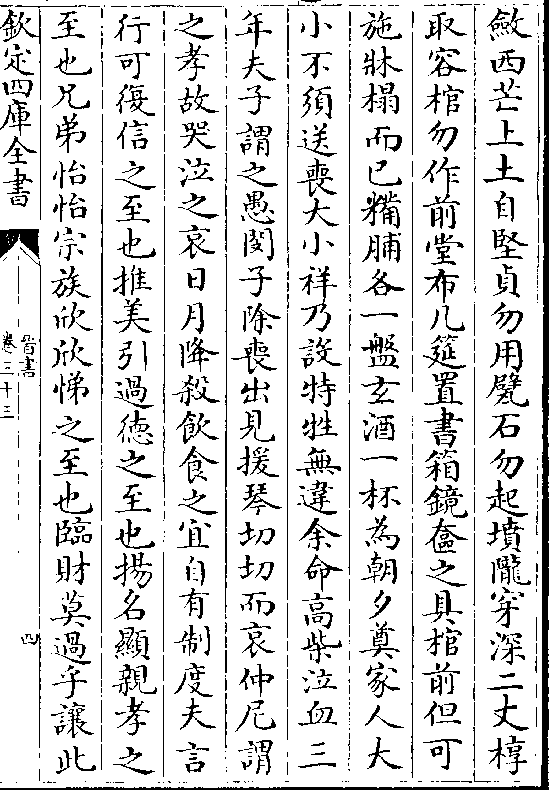 斂西芒上土自堅貞勿用甓石勿起墳隴穿深二丈椁
取容棺勿作前堂布几筵置書箱鏡奩之具棺前但可
施牀榻而已糒脯各一盤玄酒一杯為朝夕奠家人大
小不須送喪大小祥乃設特牲無違余命高柴泣血三
年夫子謂之愚閔子除喪出見援琴切切而哀仲尼謂
之孝故哭泣之哀日月降殺飲食之宜自有制度夫言
行可復信之至也推美引過德之至也揚名顯親孝之
至也兄弟怡怡宗族欣欣悌之至也臨財莫過乎讓此
欽定四庫全書
晉書
卷三十三
四